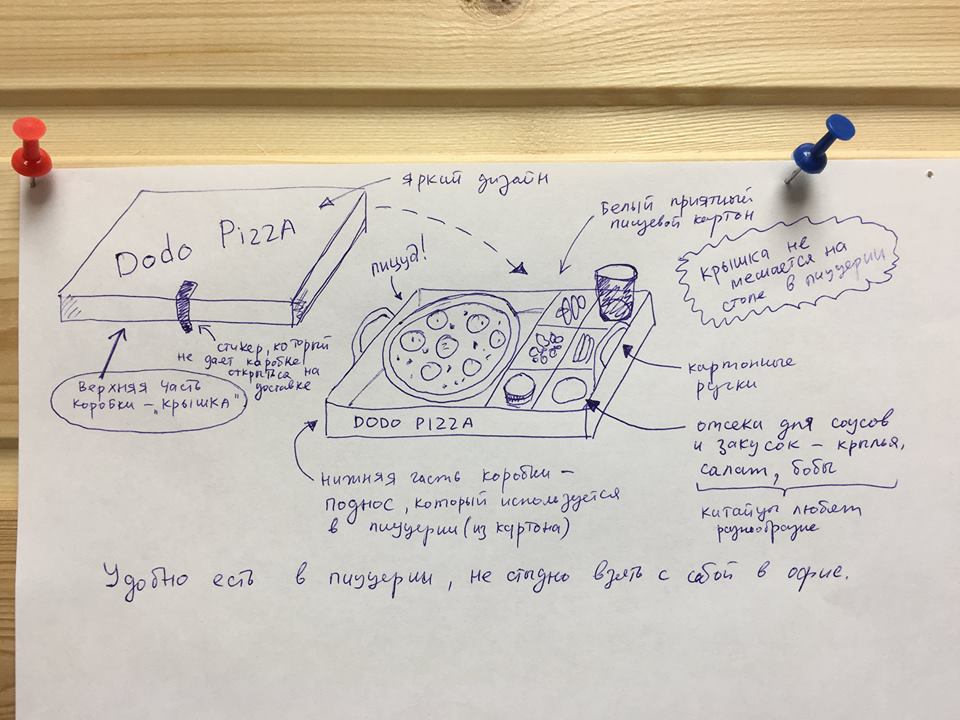 яркий дизайн
Dodo PIZZA
стикер, который
не дает коробке
открыться на
доставке
Верхняя часть
коробки – „крышка"
пицца!
Белый приятный
пищевой картон
крышка не
мешается на
столе в пиццерии
картонные
ручки
DODO PIZZA
отсеки для соусов
и закусок – крылья,
салат, бобы
китайцы любят
разнообразие
нижняя часть коробки –
поднос, который используется
в пиццерии (из картона)
Удобно есть в пиццерии, не стыдно взять с собой в офис.